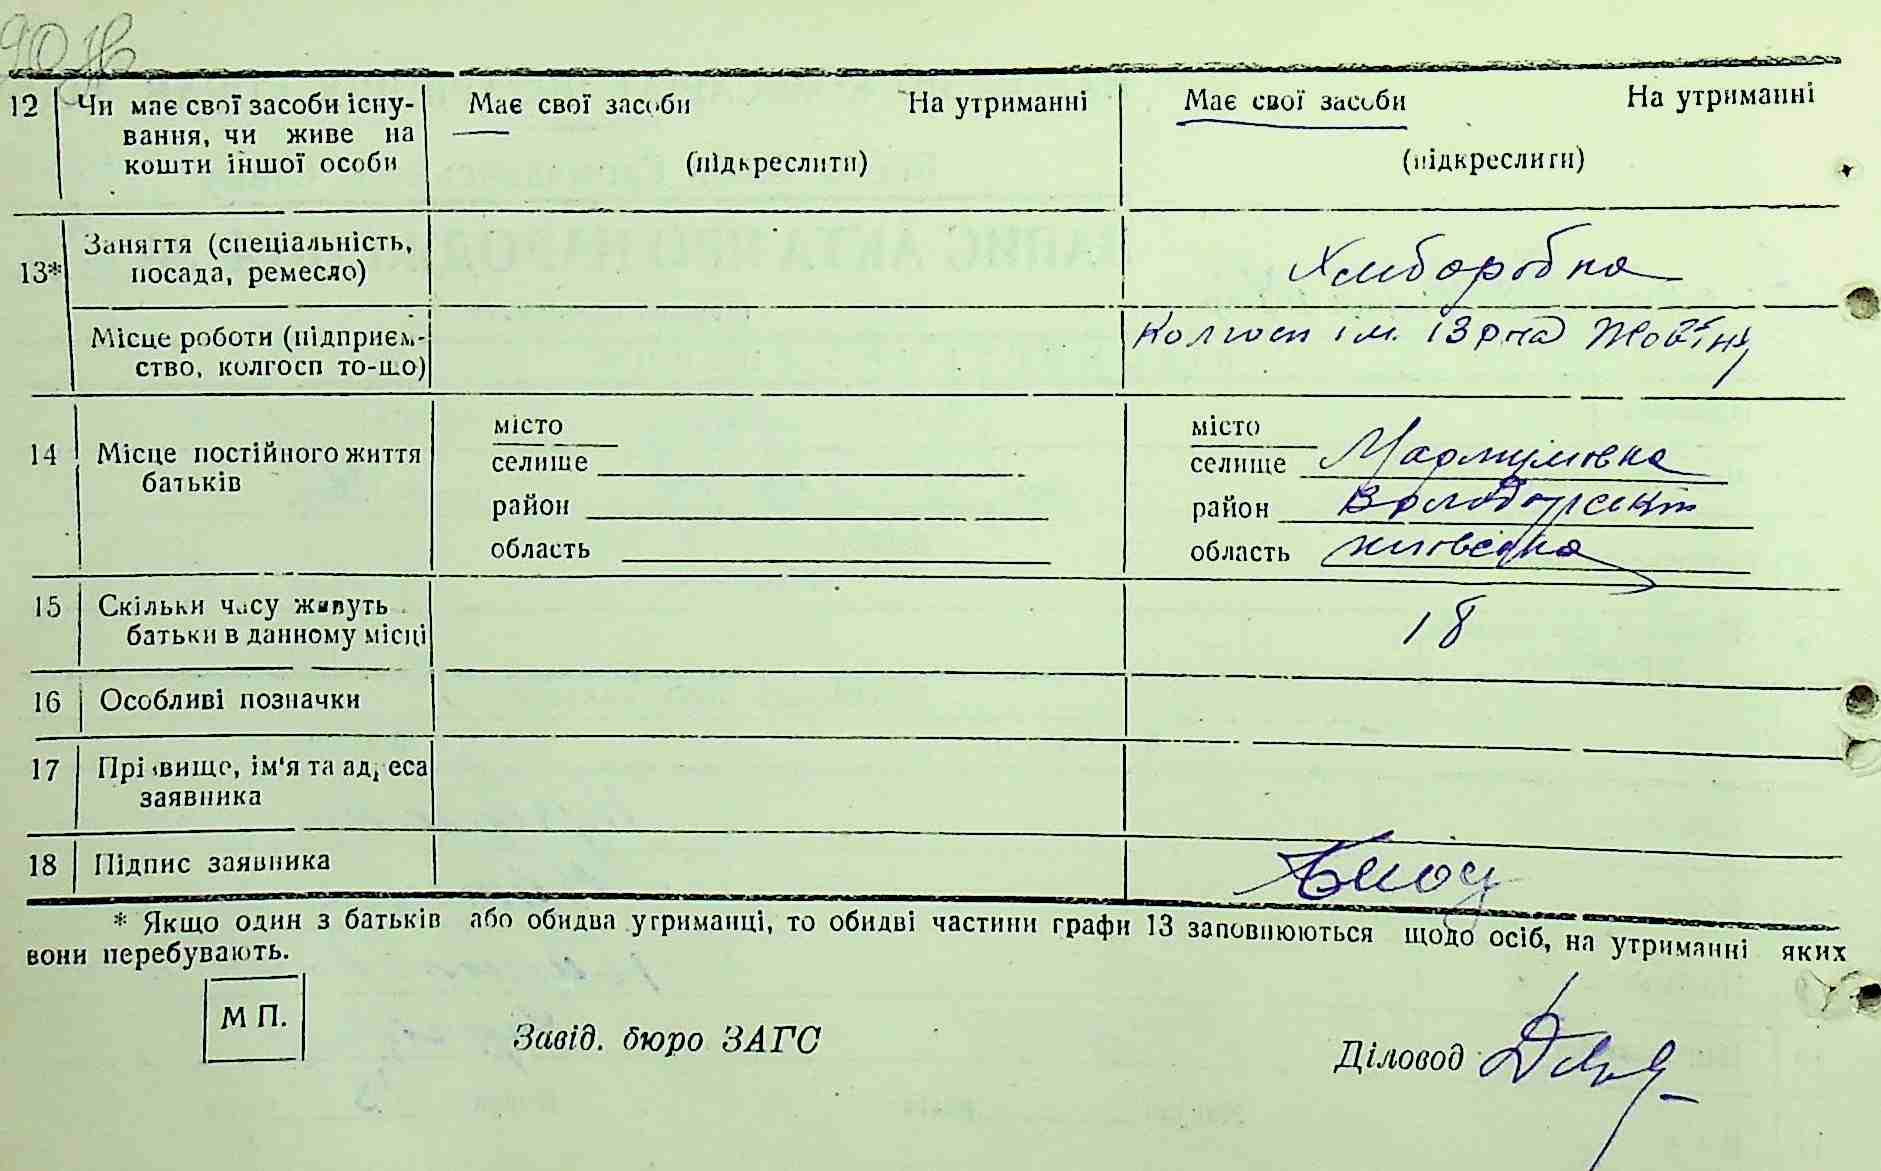 12 Чи має свої засоби існу- Має свої засоби На утриманні Має свої засоби На утриманні
вання, чи живе на
кошти іншої особи (підкреслити) (підкреслити)
13* Заняття (спеціальність, Хліборобка
посада, ремесло)
Місце роботи (підприєм- Колгосп ім. 13 р-чя Жовтня
ство, колгосп то-що)
місто місто
14 Місце постійного життя селище селище
батьків район район Володарський
область область Київська
15 Скільки часу живуть 18
батьки в данному місці
16 Особливі позначки
17 Прізвище, ім'я та адреса
заявника
18 Підпис заявника
* Якщо один з батьків або обидва утриманці, то обидві частини графи 13 заповнюються щодо осіб, на утриманні яких
вони перебувають.
М П. Завід. бюро ЗАГС Діловод